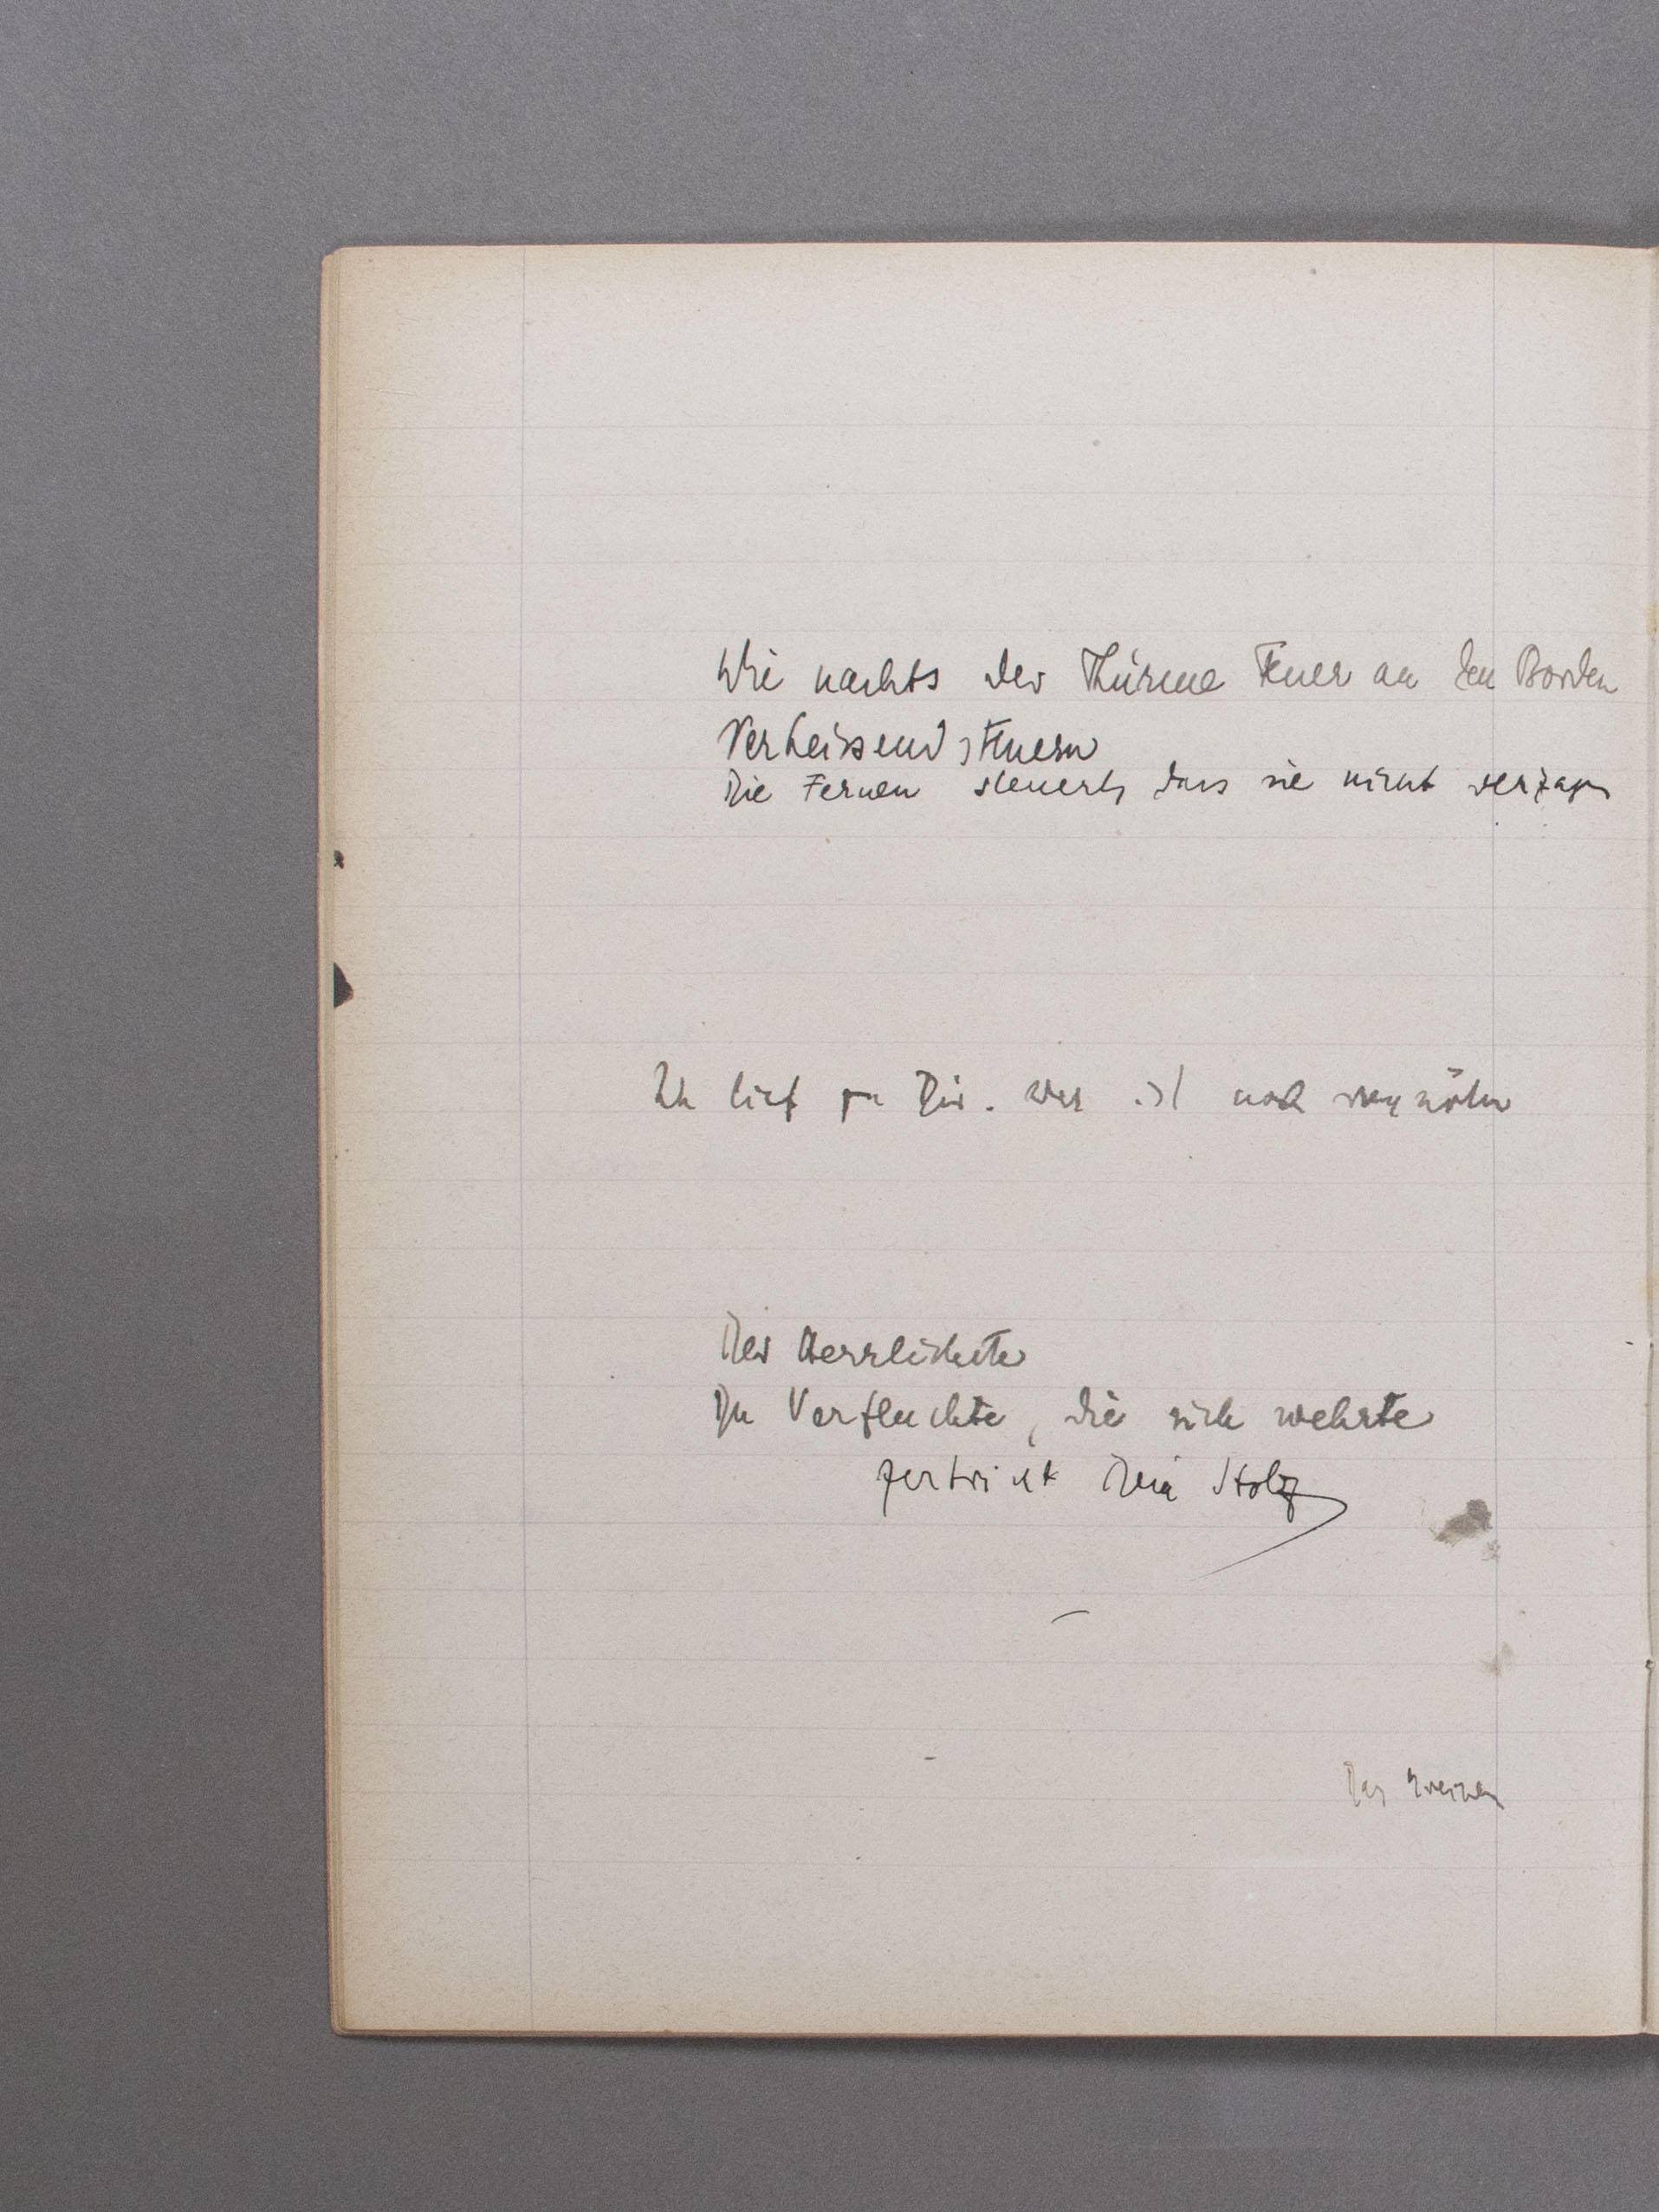 Wie nachts der Thürme Feuer an den Borden
Verheissend steuern
Die Fernen steuert, dass sie nicht verzagen
Ich lief zu Dir. wer ist noch
Der Herrlichste
Du Verfluchte, die sich wehrte
zertritt Dein Stolz
Der